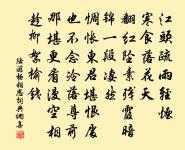 江頭疏雨輕煙
寒食落花天
翻紅墜素殘霞暗
錦一段淒然
惆悵東君堪恨處
也不念冷落尊前
那堪更看漫空相
趂柳絮榆錢
陸游極相思詞